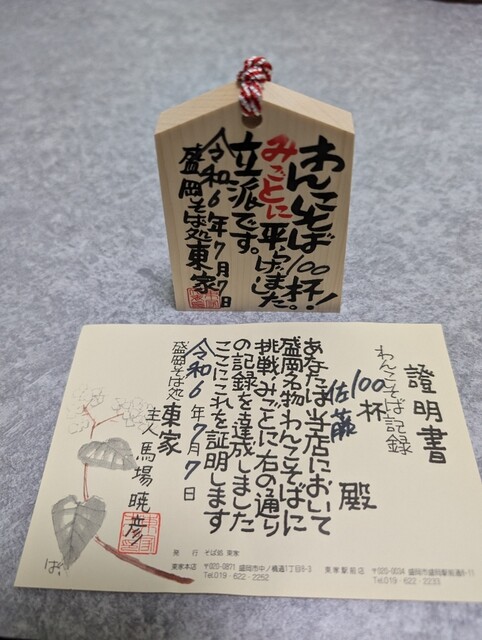 わんこそば100杯!
みごとに平らげました。
立派です。
令和6年7月7日
盛岡そば処東家
證明書
わんこそば記録
100杯
佐藤 殿
あなたは当店において
盛岡名物わんこそばに
挑戦みごとに右の通り
の記録を達成しました
ここにこれを証明します
令和6年7月7日
盛岡そば処東家
主人 馬場暁彦
発 行 そば処 東家
東家本店 〒020-0871 盛岡市中ノ橋通1丁目8-3
Tel.019・622・2252
東家駅前店 〒020-0034 盛岡市盛岡駅前通8-11
Tel.019・622・2233